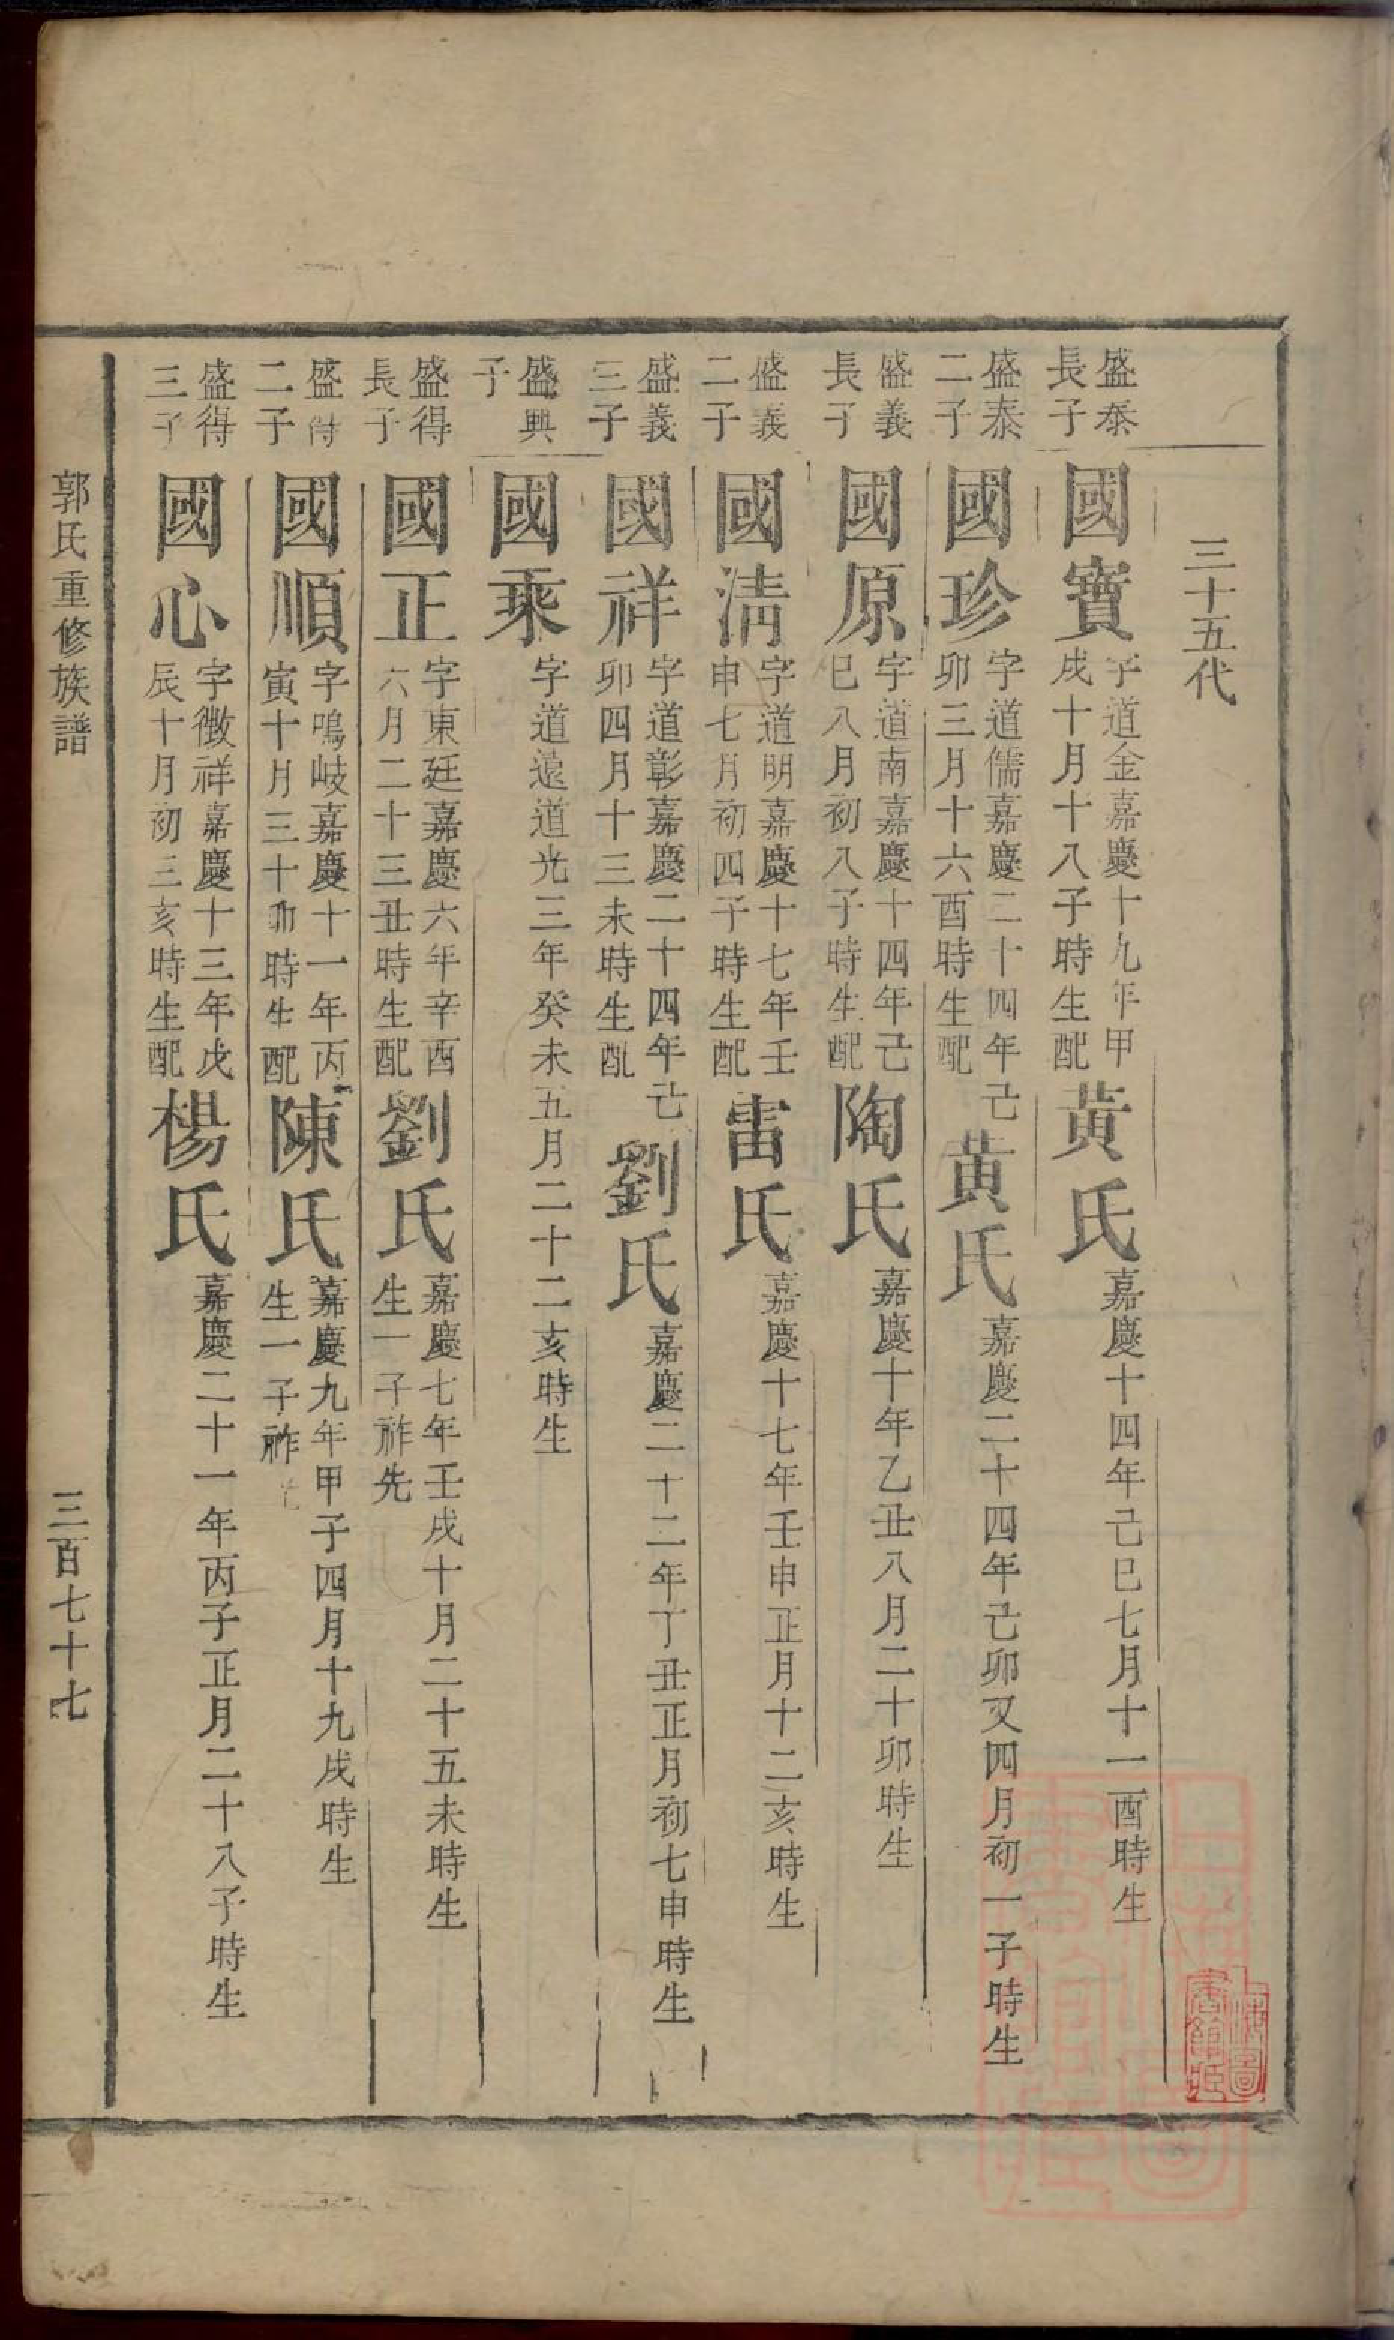 三十五代
盛泰
長子
國寶
字道金嘉慶十九年甲
戌十月十八子時生配
黃氏
嘉慶十四年己巳七月十一酉時生
盛泰
二子
國珍
字道儒嘉慶二十四年己
卯三月十六酉時生配
黃氏
嘉慶二十四年己卯又四月初一子時生
盛義
長子
國原
字道南嘉慶十四年己
巳八月初八子時生配
陶氏
嘉慶十年乙丑八月二十卯時生
盛義
二子
國清
字道明嘉慶十七年壬
申七月初四子時生配
雷氏
嘉慶十七年壬申正月十二亥時生
盛義
三子
國祥
字道彰嘉慶二十四年己
卯四月十三未時生配
劉氏
嘉慶二十二年丁丑正月初七申時生
盛興
子
國乘
字道遠道光三年癸未五月二十二亥時生
盛得
長子
國正
字東廷嘉慶六年辛酉
六月二十三丑時生配
劉氏
嘉慶七年壬戌十月二十五未時生
生一子祚先
盛得
二子
國順
字鳴岐嘉慶十一年丙
寅十月三十卯時生配
陳氏
嘉慶九年甲子四月十九戌時生
生一子祚
盛得
三子
國心
字徴祥嘉慶十三年戊
辰十月初三亥時生配
楊氏
嘉慶二十一年丙子正月二十八子時生
郭氏重修族譜
三百七十七
上海圖
書館藏